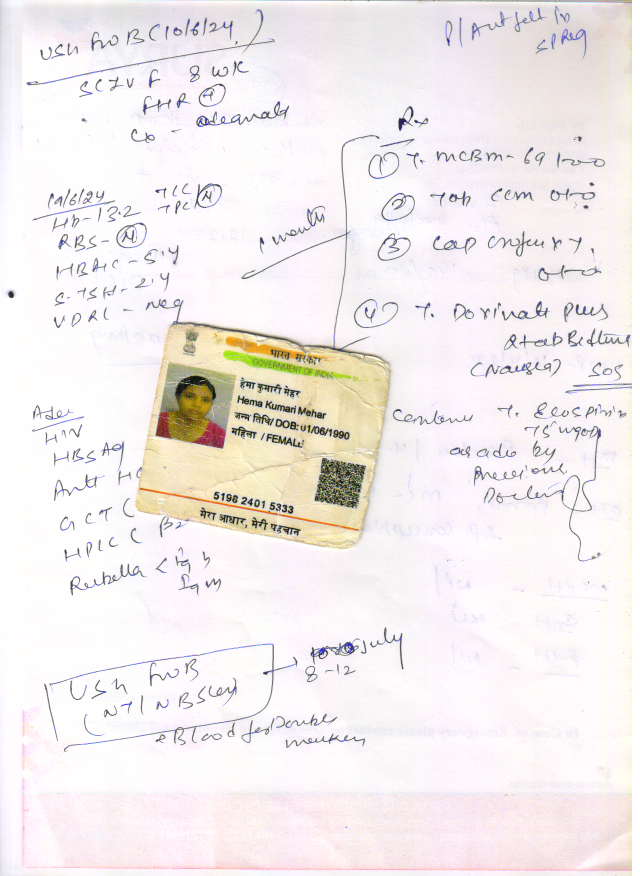 USG FWB (10/6/24)
P/A
SLIUF 8 WK
FHR +
Cx - adequate
Rx
① T. MCBM-69 1-0-0
② Tab CCM 0-1-0
③ Cap 0-1-0
1 month
④ T. Doxinate plus
2 tab Bedtime
(Nausea) SOS
19/6/24
Hb - 13.2 TLC
TPLC N
RBS - N
HBA1C - 5.4
S.TSH - 2.4
VDRL - Neg
Continue T. Ecosprin
75 mg OD
as adv by
Previous
Doctor
भारत सरकार
GOVERNMENT OF INDIA
हेमा कुमारी मेहर
Hema Kumari Mehar
जन्म तिथि/ DOB: 01/06/1990
महिला / FEMALE
5196 2401 5333
मेरा आधार, मेरी पहचान
Adv
HIV
HBSAg
Anti HC
GCT (
HPLC (
Rubella < Ig G
Ig M
USG FWB
(NT/NB Scan) → July
8-12
+ Blood for Double
marker